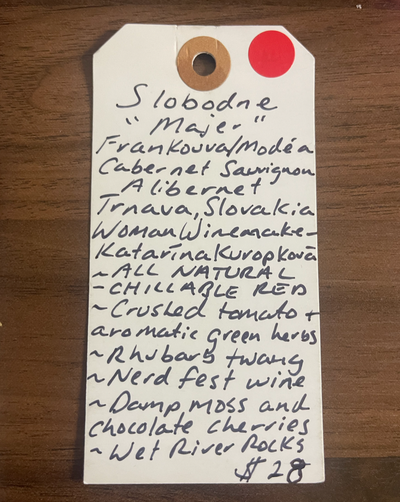 Slobodne
"Majer"
Frankovva/Modéa
Cabernet Sauvignon
Alibernet
Trnava, Slovakia
Woman Winemake-
Katarína Kuropková
~ ALL NATURAL
- CHILLABLE RED
~ Crushed tomato +
aromatic green herbs
~ Rhubarb twang
~ Nerd fest wine
~ Damp moss and
chocolate cherries
~ Wet River Rocks
$28